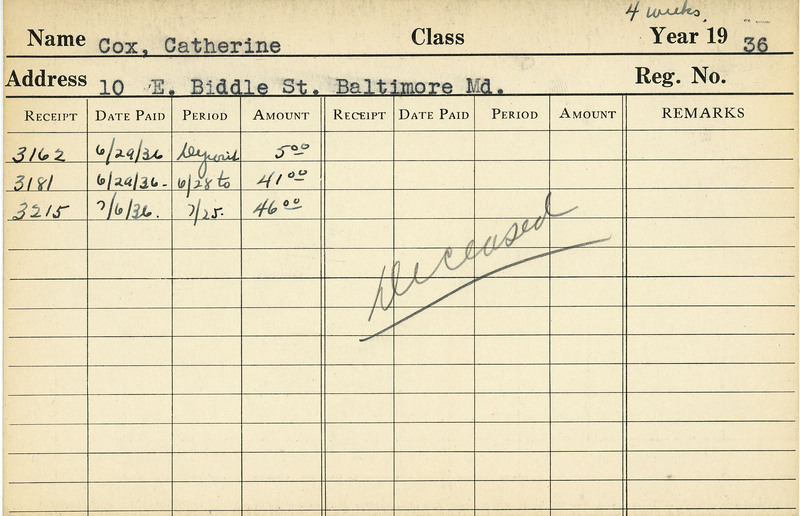 4 weeks.
Name Cox, Catherine Class Year 19 36
Address 10 E. Biddle St. Baltimore Md. Reg. No.
RECEIPT DATE PAID PERIOD AMOUNT RECEIPT DATE PAID PERIOD AMOUNT REMARKS
3162 6/29/36 Deposit 5 00
3181 6/29/36. 6/28 to 41 00
3215 7/6/36. 7/25. 46 00
Deceased